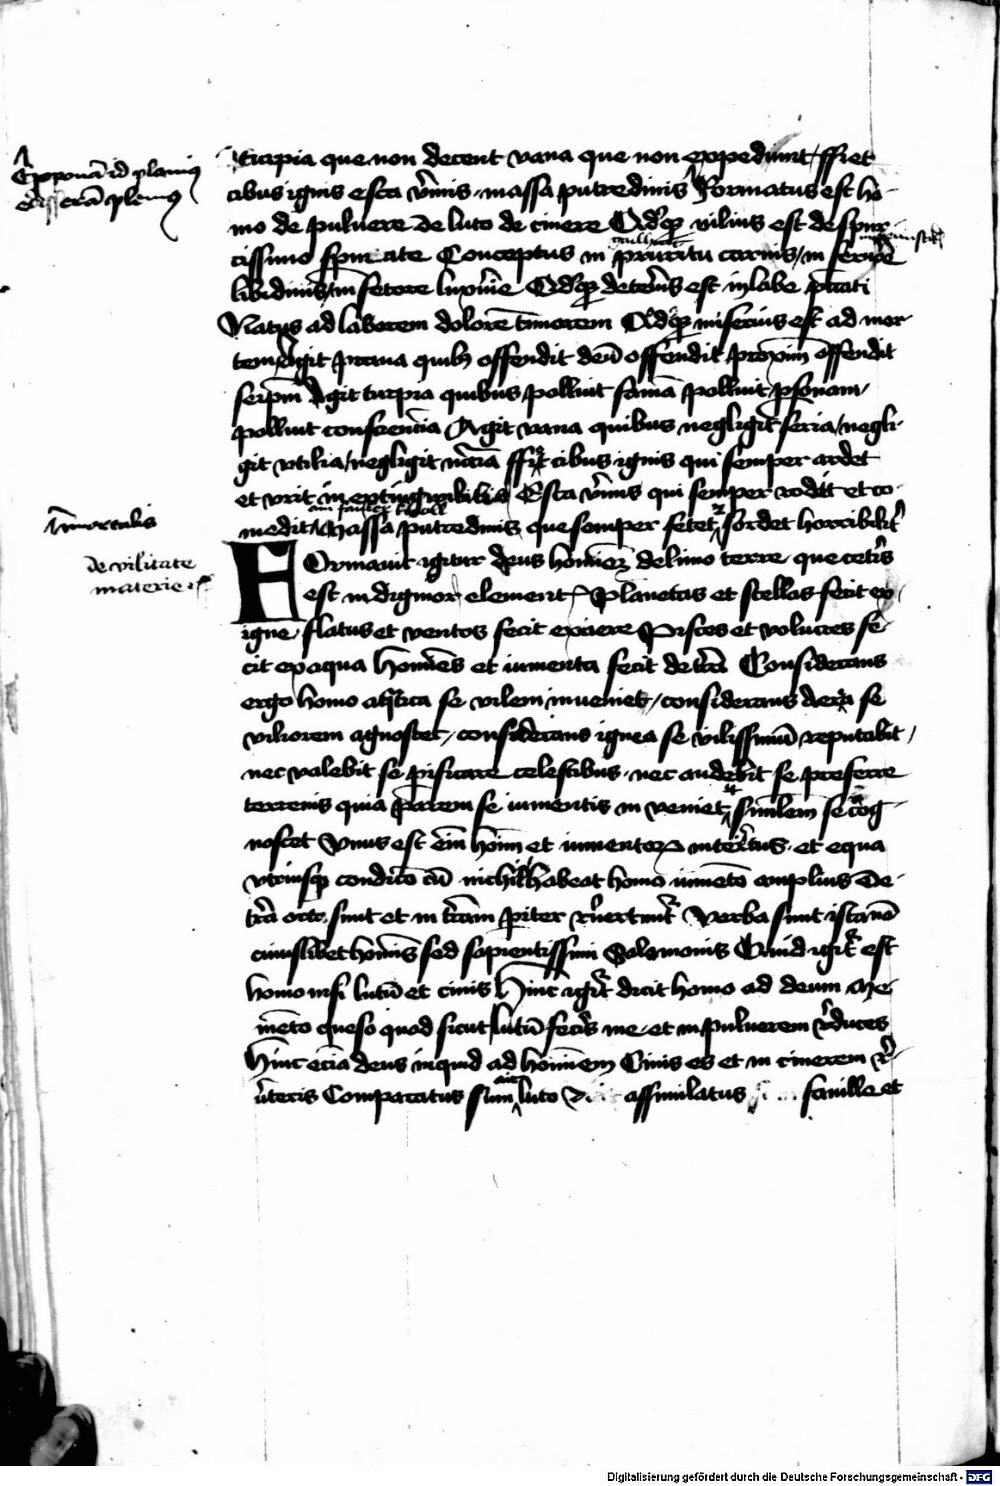 Exponā id planiꝰ
edisserā pleniꝰ
turpia que non decent vana que non expediunt / ffiet
cibus ignis esca v̄mis · massa putredinis Formatus est ho-
mo de puluere de luto de cinere Qd'qꝫ vilius est de spur-
cissimo spmate Conceptus in pruritu carnis / in feruore
libidinis / in fetore luxurie Qd'qꝫ deteriꝰ est in labe pccati
Natus ad laborem dolorē timorem Qd'qꝫ miserius est ad mor-
tem Agit praua quibꝫ offendit deū offendit proximū offendit
seipm̄ Agit turpia quibus polluit famā polluit psonam /
polluit conscienciā Agit vana quibus negligit seria / negli-
git vtilia / negligit nccīa ffit cibus ignis qui semper ardet
et vrit in extinguibilis Esca v̄mis qui semper rodit et co-
medit / Massa putredinis que semper fetet ⁊ sordet horribilit'
immortalis
de vilitate
materie
Formauit igitur deus hominē de limo terre que ceteris
est indignior element Planetas et stellas fecit ex
igne flatus et ventos fecit ex aere Pisces et volucres fe-
cit ex aqua Homīes et iumenta fecit de tr̄a Considerans
ergo homo aqtica se vilem inueniet / considerans aerea se
viliorem agnoscet / considerans ignea se vilissimū reputabit /
nec valebit se pificare celestibus · nec audebit se preferre
terrenis quia parem se iumentis in veniet similem se cog-
noscet Vnus est em̄ hoīm et iumentoꝝ interitus · et equa
vtriusqꝫ condicō cū nichil habeat homo iumeto amplius De
tr̄a orta sunt et in tr̄am piter reuertunt' Verba sunt ista nō
cuiuslibet homīs sed sapientissimi Salomonis Quid igit' est
homo nisi lutū et cinis Hinc igit' dicit homo ad deum Me-
mēto queso quod sicut lutū feceris me · et in puluerem reduces
Hinc eciā deus inquid ad hominem Cinis es et in cinerem re-
u'teris Comparatus sum luto assimilatus fauille et